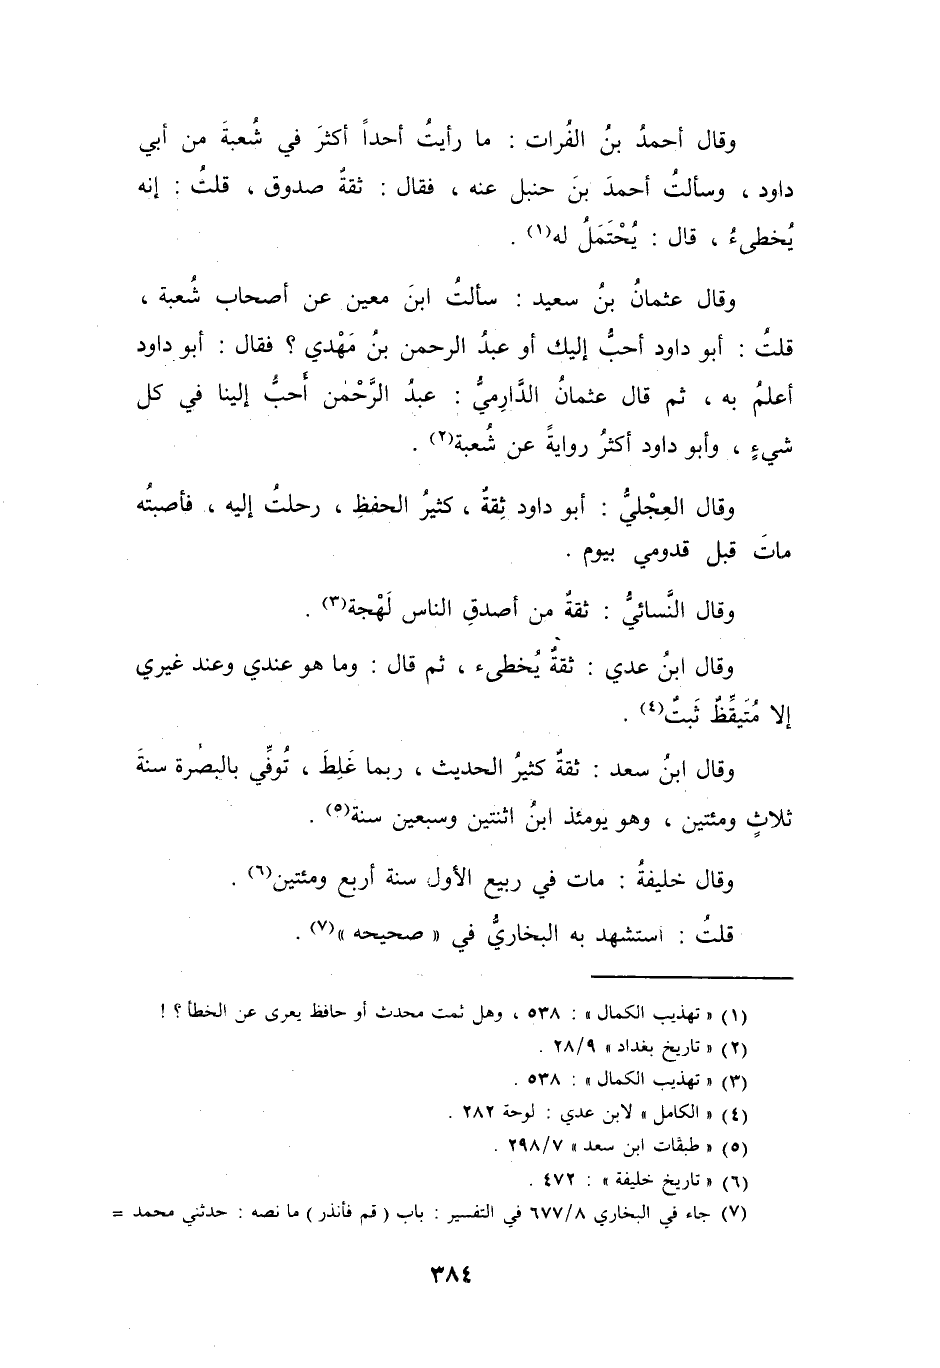 وقال أحمدُ بنُ الفُرات : ما رأيتُ أحداً أكثرَ في شُعبةَ من أبي
داود ، وسألتُ أحمدَ بنَ حنبل عنه ، فقال : ثقةٌ صدوق ، قلتُ : إنه
يُخطىءُ ، قال : يُحْتَمَلُ له(١) .
وقال عثمانُ بنُ سعيد : سألتُ ابنَ معين عن أصحاب شُعبة ،
قلتُ : أبو داود أحبُّ إليك أو عبدُ الرحمن بنُ مَهْدي ؟ فقال : أبو داود
أعلمُ به ، ثم قال عثمانُ الدَّارِميُّ : عبدُ الرَّحْمٰن أَحبُّ إلينا في كل
شيءٍ ، وأبو داود أكثرُ روايةً عن شُعبة(٢) .
وقال العِجْليُّ : أبو داود ثِقةٌ ، كثيرُ الحفظِ ، رحلتُ إليه ، فأصبتُه
ماتَ قبل قدومي بيوم .
وقال النَّسائيُّ : ثقةٌ من أصدقِ الناس لَهْجة(٣) .
وقال ابنُ عدي : ثقةٌ يُخطىء ، ثم قال : وما هو عندي وعند غيري
إلا مُتَيقِّظٌ ثَبتٌ(٤) .
وقال ابنُ سعد : ثقةٌ كثيرُ الحديث ، ربما غَلِطَ ، تُوفِّي بالبصُرة سنةَ
ثلاثٍ ومئتين ، وهو يومئذ ابنُ اثنتين وسبعين سنة(٥) .
وقال خليفةُ : مات في ربيع الأول سنة أربع ومئتين(٦) .
قلتُ : استشهد به البخاريُّ في « صحيحه »(٧) .
(١) « تهذيب الكمال » : ٥٣٨ ، وهل ثمت محدث أو حافظ يعرى عن الخطأ ؟ !
(٢) « تاريخ بغداد » ٢٨/٩ .
(٣) « تهذيب الكمال » : ٥٣٨ .
(٤) « الكامل » لابن عدي : لوحة ٢٨٢ .
(٥) « طبقات ابن سعد » ٢٩٨/٧ .
(٦) « تاريخ خليفة » : ٤٧٢ .
(٧) جاء في البخاري ٦٧٧/٨ في التفسير : باب ( قم فأنذر ) ما نصه : حدثني محمد =
٣٨٤